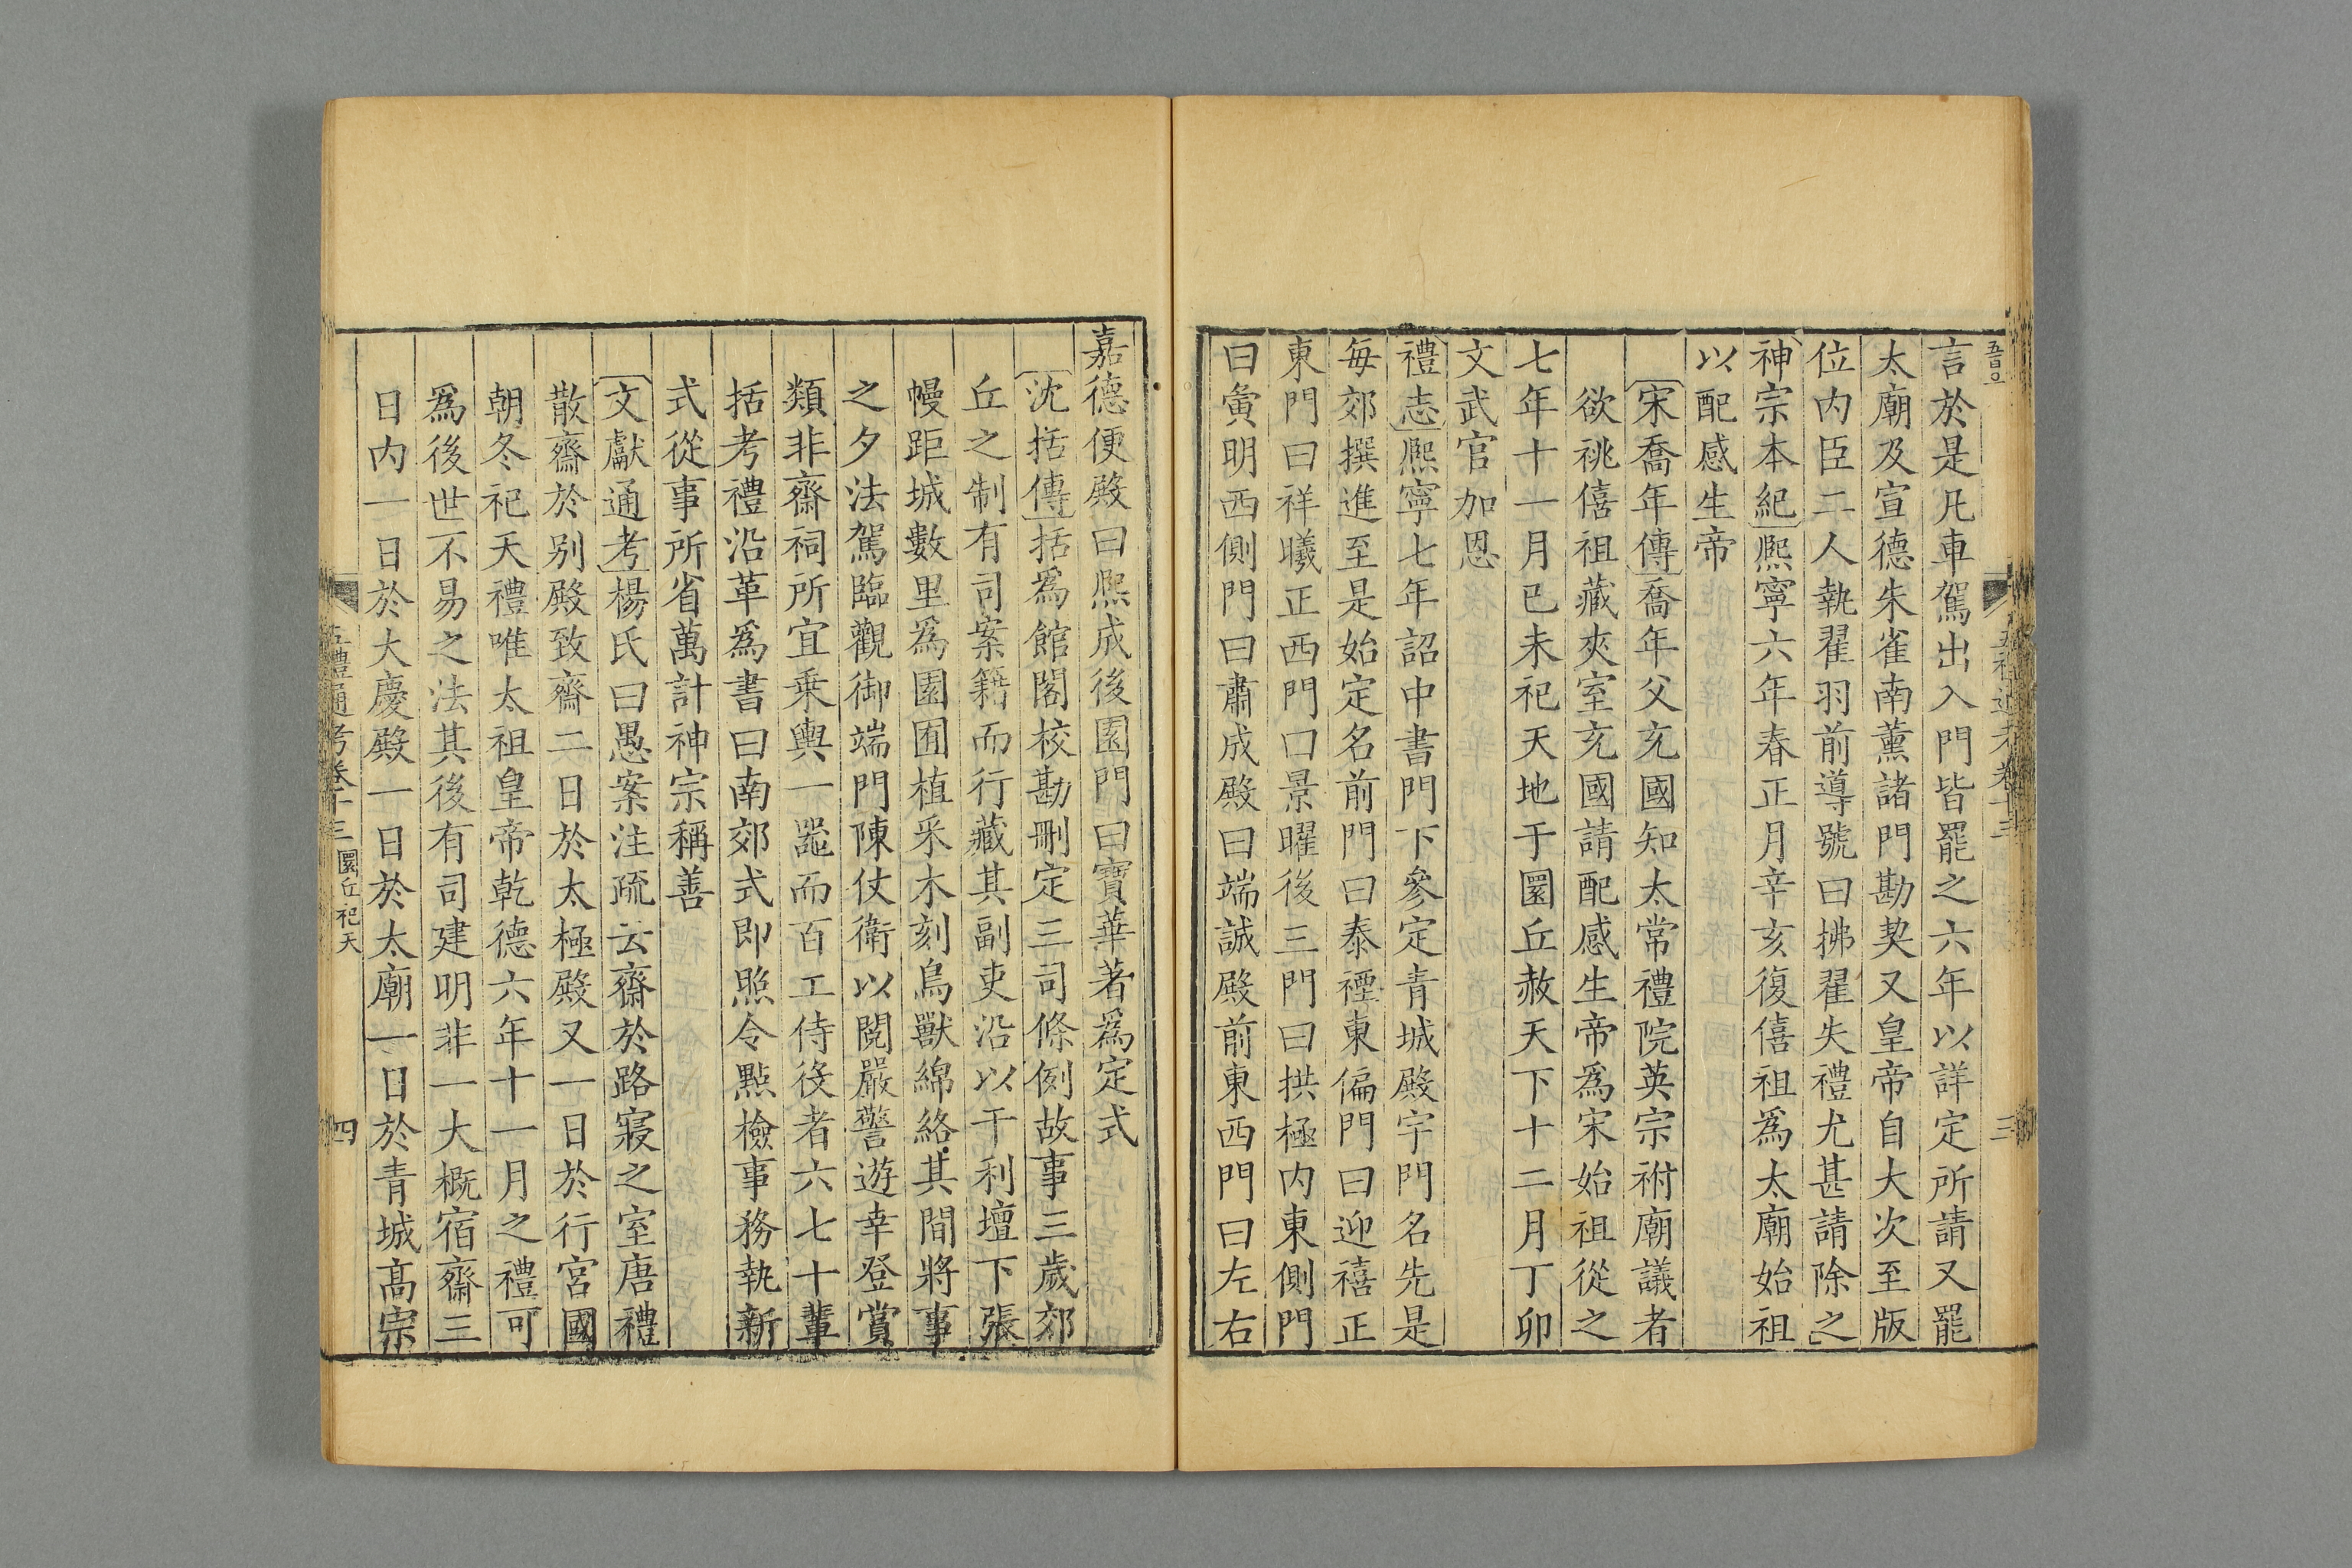 言於是凡車駕出入門皆罷之六年以詳定所請又罷
太廟及宣德朱雀南薰諸門勘契又皇帝自大次至版
位内臣二人執翟羽前導號曰拂翟失禮尤甚請除之
神宗本紀熙寧六年春正月辛亥復僖祖爲太廟始祖
以配感生帝
宋喬年傳喬年父充國知太常禮院英宗祔廟議者
欲祧僖祖藏夾室充國請配感生帝爲宋始祖從之
七年十一月已未祀天地于圜丘赦天下十二月丁卯
文武官加恩
禮志熙寧七年詔中書門下參定青城殿宇門名先是
每郊撰進至是始定名前門曰泰禋東偏門曰迎禧正
東門曰祥曦正西門口景曜後三門曰拱極内東側門
曰夤明西側門曰肅成殿曰端誠殿前東西門曰左右
嘉德便殿曰熙成後園門曰寶華著爲定式
沈括傳括爲館閣校勘刪定三司條例故事三歲郊
丘之制有司案籍而行藏其副吏沿以干利壇下張
幔距城數里爲園囿植采木刻鳥獸綿絡其間將事
之夕法駕臨觀御端門陳仗衛以閱嚴警遊幸登賞
類非齋祠所宜乗輿一噐而百工侍役者六七十輩
括考禮沿革爲書曰南郊式即照令點檢事務執新
式從事所省萬計神宗稱善
文獻通考楊氏曰愚案注疏云齋於路寢之室唐禮
散齋於别殿致齋二日於太極殿又一日於行宮國
朝冬祀天禮唯太祖皇帝乾德六年十一月之禮可
爲後世不易之法其後有司建明非一大概宿齋三
日内一日於大慶殿一日於太廟一日於青城高宗
五禮通考卷十三 圜丘祀天 四